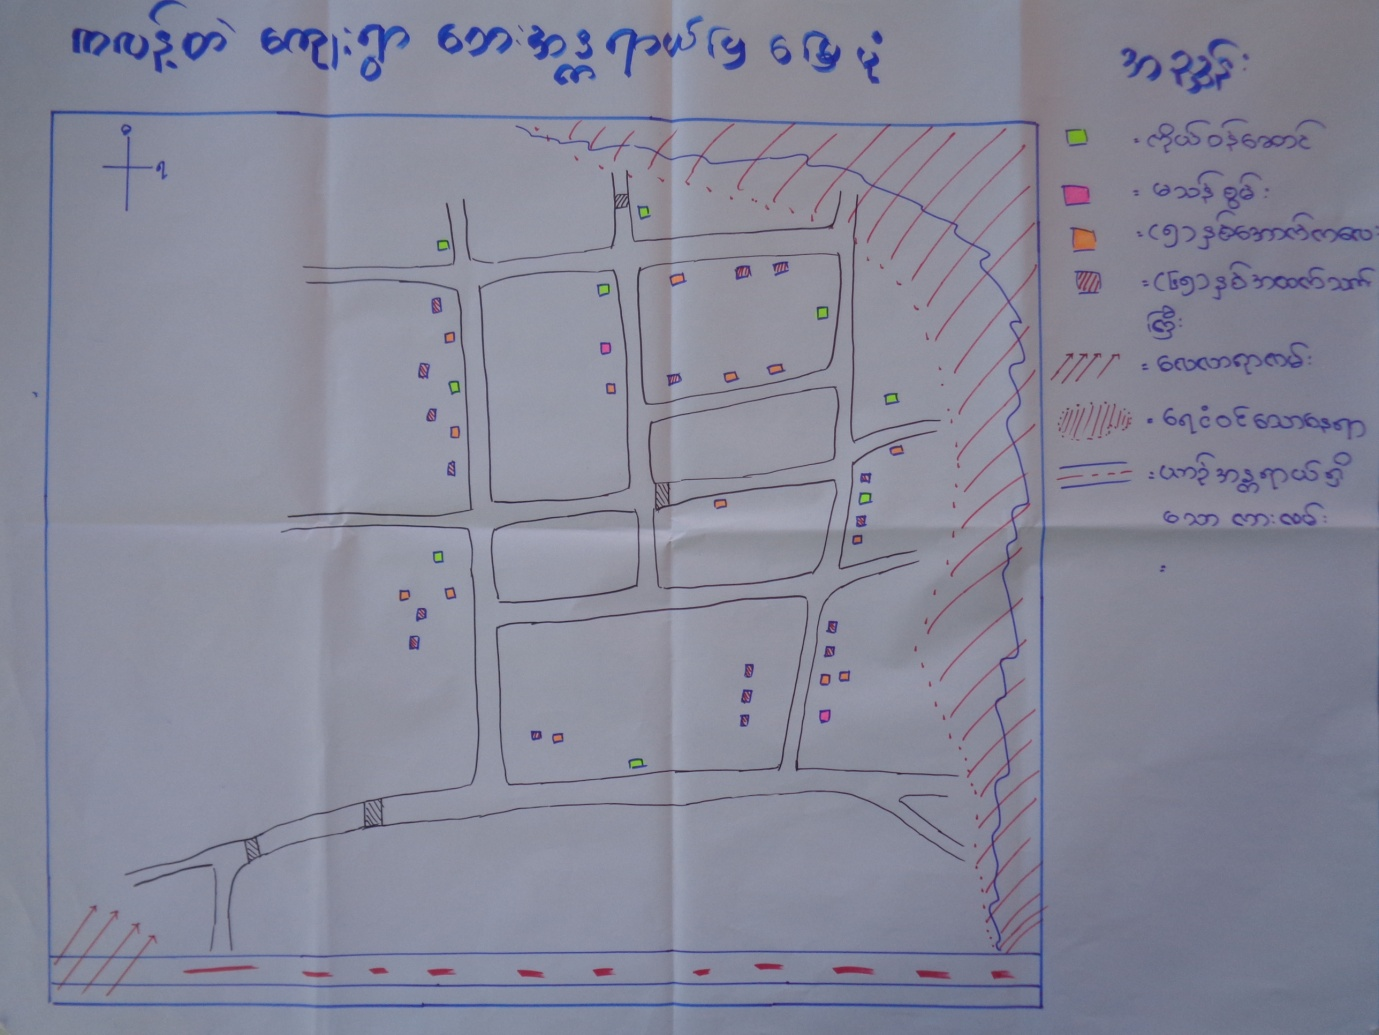 ကလန့်တဲ ကျေးရွာ ဘေးအန္တရာယ်ပြ မြေပုံ
အညွှန်း
= ကိုယ်ဝန်ဆောင်
= မသန်စွမ်း
= (၅) နှစ်အောက်ကလေး
= (၆၅) နှစ်အထက်သက်
ကြီး
= လေလာရာလမ်း
= ရေငံဝင်သောနေရာ
= ယာဉ်အန္တရာယ်ရှိ
သော ကားလမ်း
=